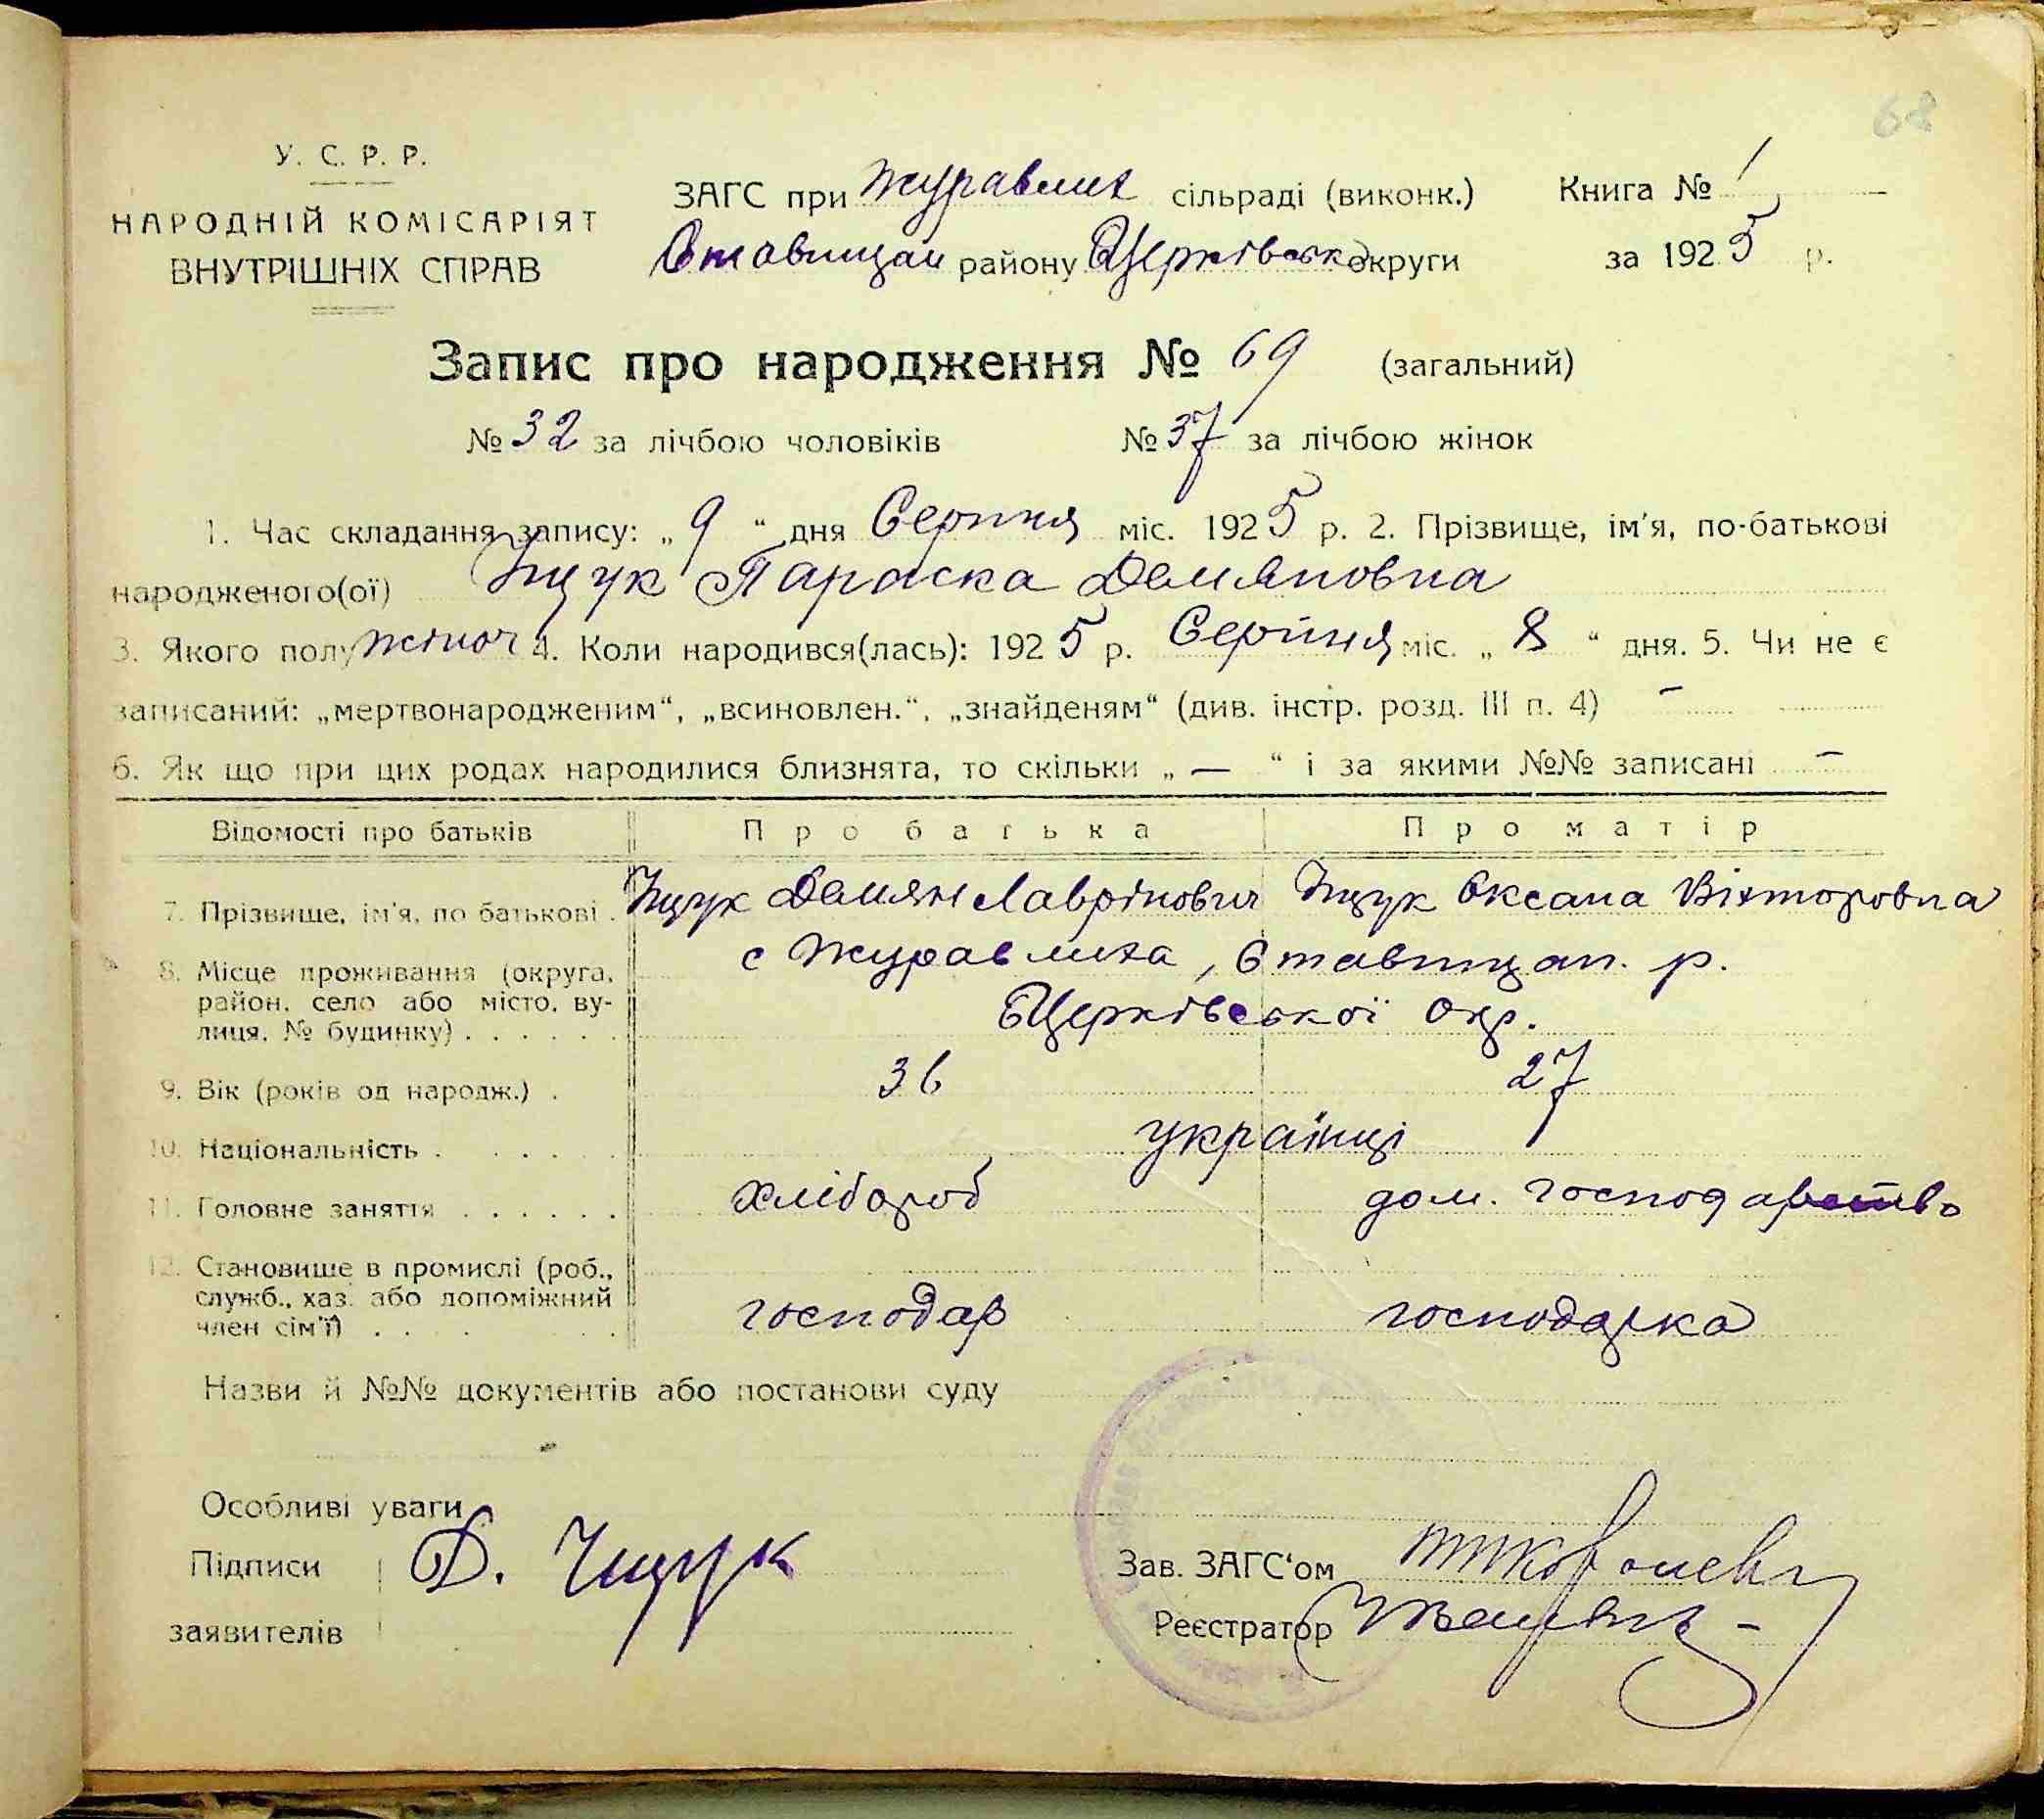 68
У. С. Р. Р.
НАРОДНІЙ КОМІСАРІЯТ
ВНУТРІШНІХ СПРАВ
ЗАГС при Журавлих сільраді (виконк.) Книга № 1
Ставищан району БЦерківськ округи за 1925 р.
Запис про народження № 69 (загальний)
№ 32 за лічбою чоловіків № 37 за лічбою жінок
1. Час складання запису: „ 9 “ дня Серпня міс. 1925 р. 2. Прізвище, ім'я, по-батькові
народженого(ої) Іщук Параска Демяновна
3. Якого полу жіноч 4. Коли народився(лась): 1925 р. Серпня міс. „ 8 “ дня. 5. Чи не є
записаний: „мертвонародженим“, „всиновлен.“, „знайденям“ (див. інстр. розд. III п. 4) —
6. Як що при цих родах народилися близнята, то скільки „ — “ і за якими №№ записані —
Відомості про батьків Про батька Про матір
7. Прізвище, ім'я, по батькові . Іщук Демян Лаврінович Іщук Оксана Вікторовна
8. Місце проживання (округа, с Журавлиха, Ставищан. р.
район, село або місто, ву-
лиця, № будинку) . . . . . . БЦерківської окр.
9. Вік (років од народж.) . 36 27
10. Національність . . . . . . українці
11. Головне заняття . . . . . . хлібороб дом. господарство
12. Становише в промислі (роб.,
служб., хаз. або допоміжний
член сім'ї) . . . . господар господарка
Назви й №№ документів або постанови суду
Особливі уваги
Підписи Д. Іщук Зав. ЗАГС‘ом
заявителів Реєстратор